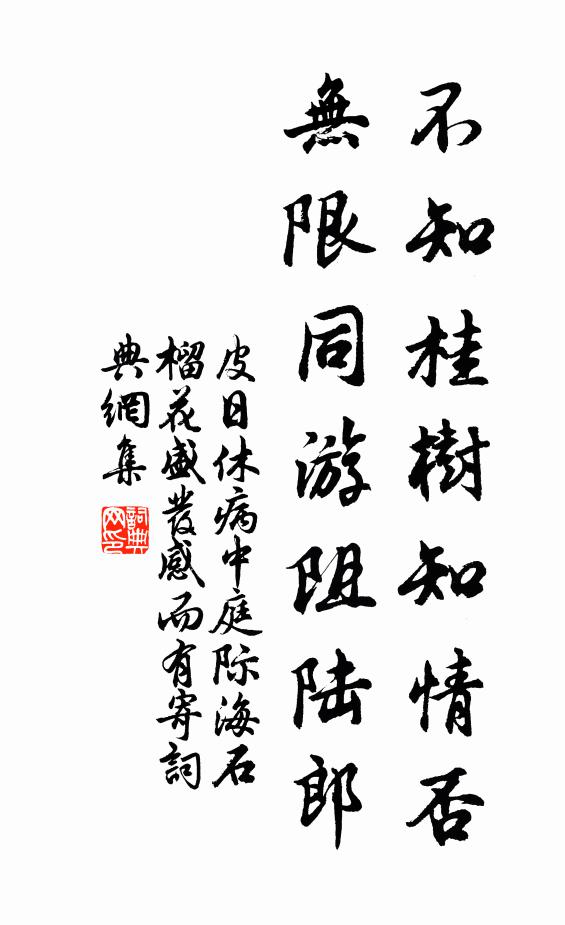 不知桂樹知情否
無限同游阻陆郎
皮日休病中庭际海石
榴花盛發感而有寄詞
典網集
詞典
网印